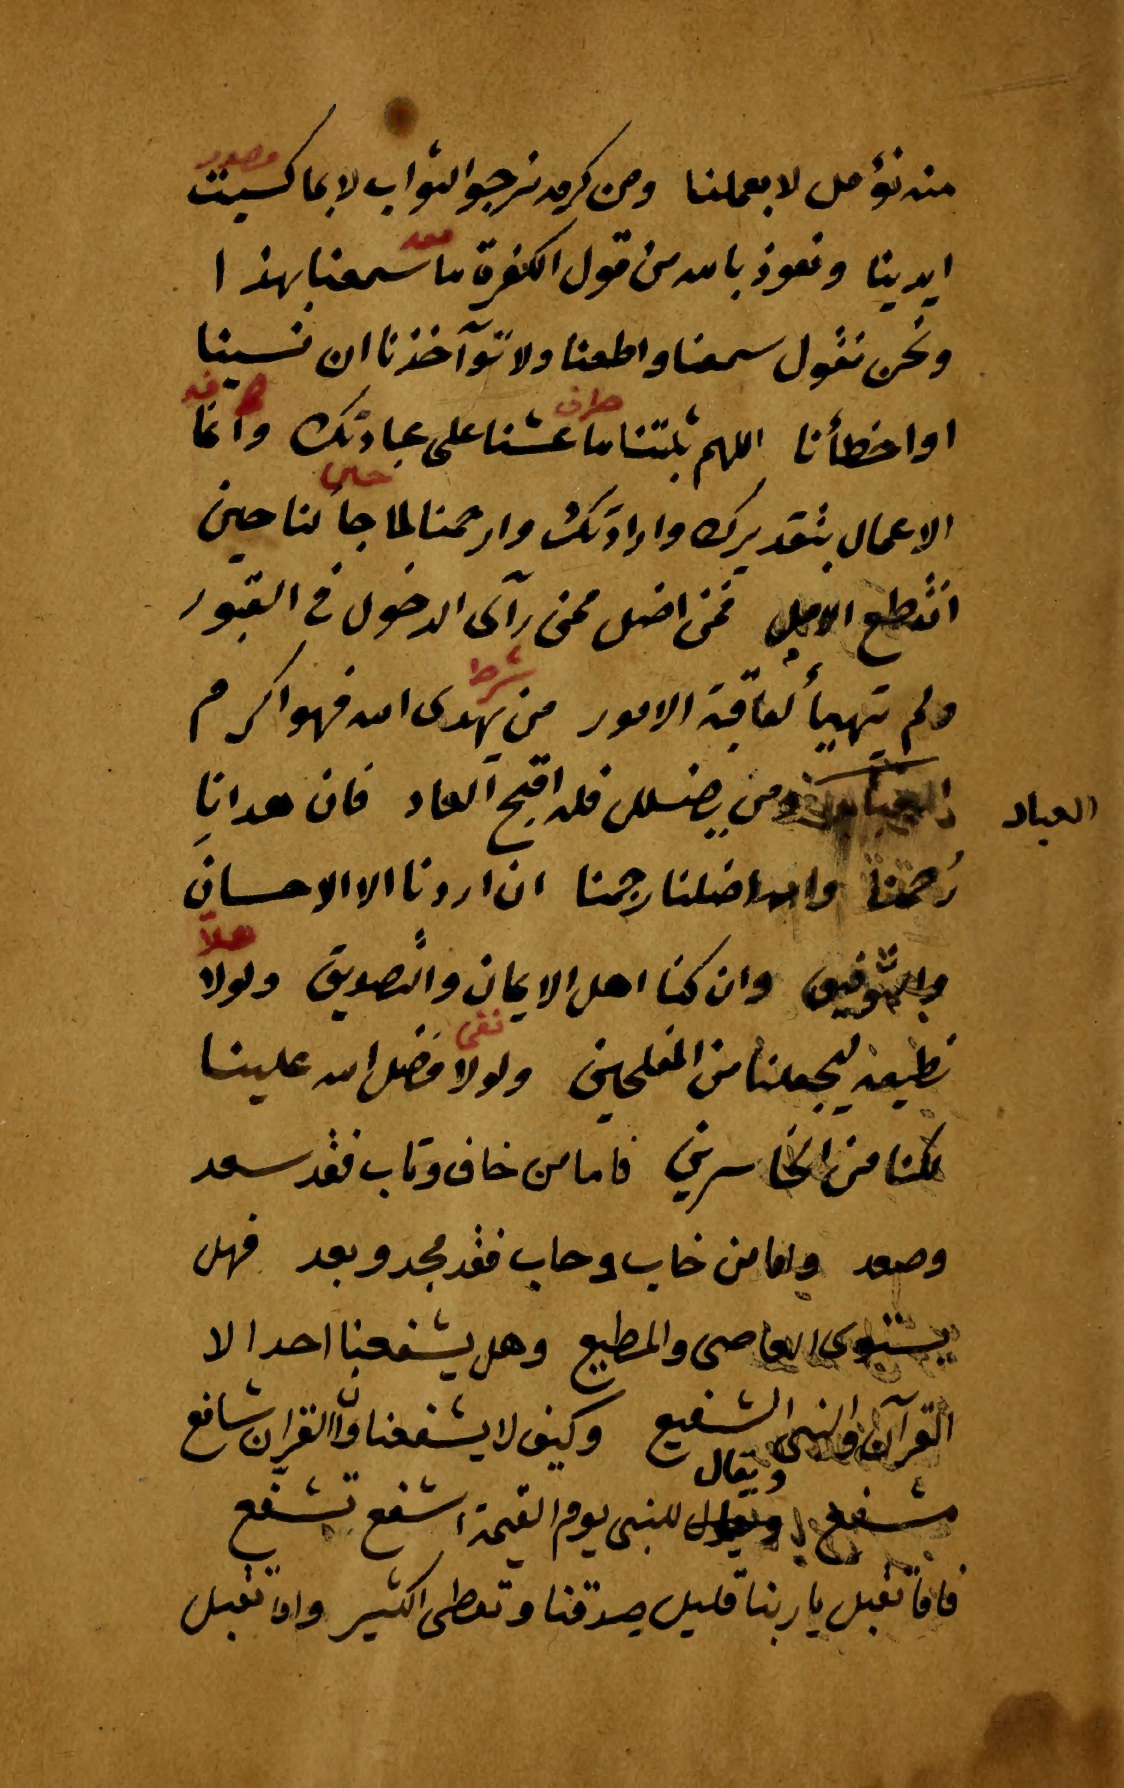 منه نؤمل لا بعملنا ومن كرمه نرجوا الثواب لا بما كسبت
مصدر
ايدينا ونعوذ بالله من قول الكفرة ما سمعنا بهذا
ونحن نقول سمعنا واطعنا ولا تؤآخذنا ان نسينا
او اخطأنا اللهم ثبتنا ما عشنا على عبادتك وانما
ظرف
الاعمال بتقديرك وارادتك وارحمنا لما جأ لنا حين
انقطع الامل فمن اضل ممن رآى الدخول في القبور
ولم يتهيأ لعاقبة الامور من يهدى الله فهو اكرم
شرط
العباد
ومن يضلل فله اقبح العاد فان هدانا
رحمنا وان اضلنا رجمنا ان اردنا الا الاحسان
والتوفيق وان كنا اهل الايمان والتصديق ولولا
هلا
نطيعه ليجعلنا من المفلحين ولولا فضل الله علينا
نفى
لكنا من الخاسرين فاما من خاف وتاب فقد سعد
وصعد واما من خاب وحاب فقد مجد وبعد فهل
يستوى العاصى والمطيع وهل يشفعنا احد الا
القرآن والنبى الشفيع وكيف لا يشفعنا وان القرآن شافع
مشفع ويقال للنبى يوم القيمة اشفع تشفع
فاما تقبل يا ربنا قليل صدقنا وتعطى الكثير واما تقبل